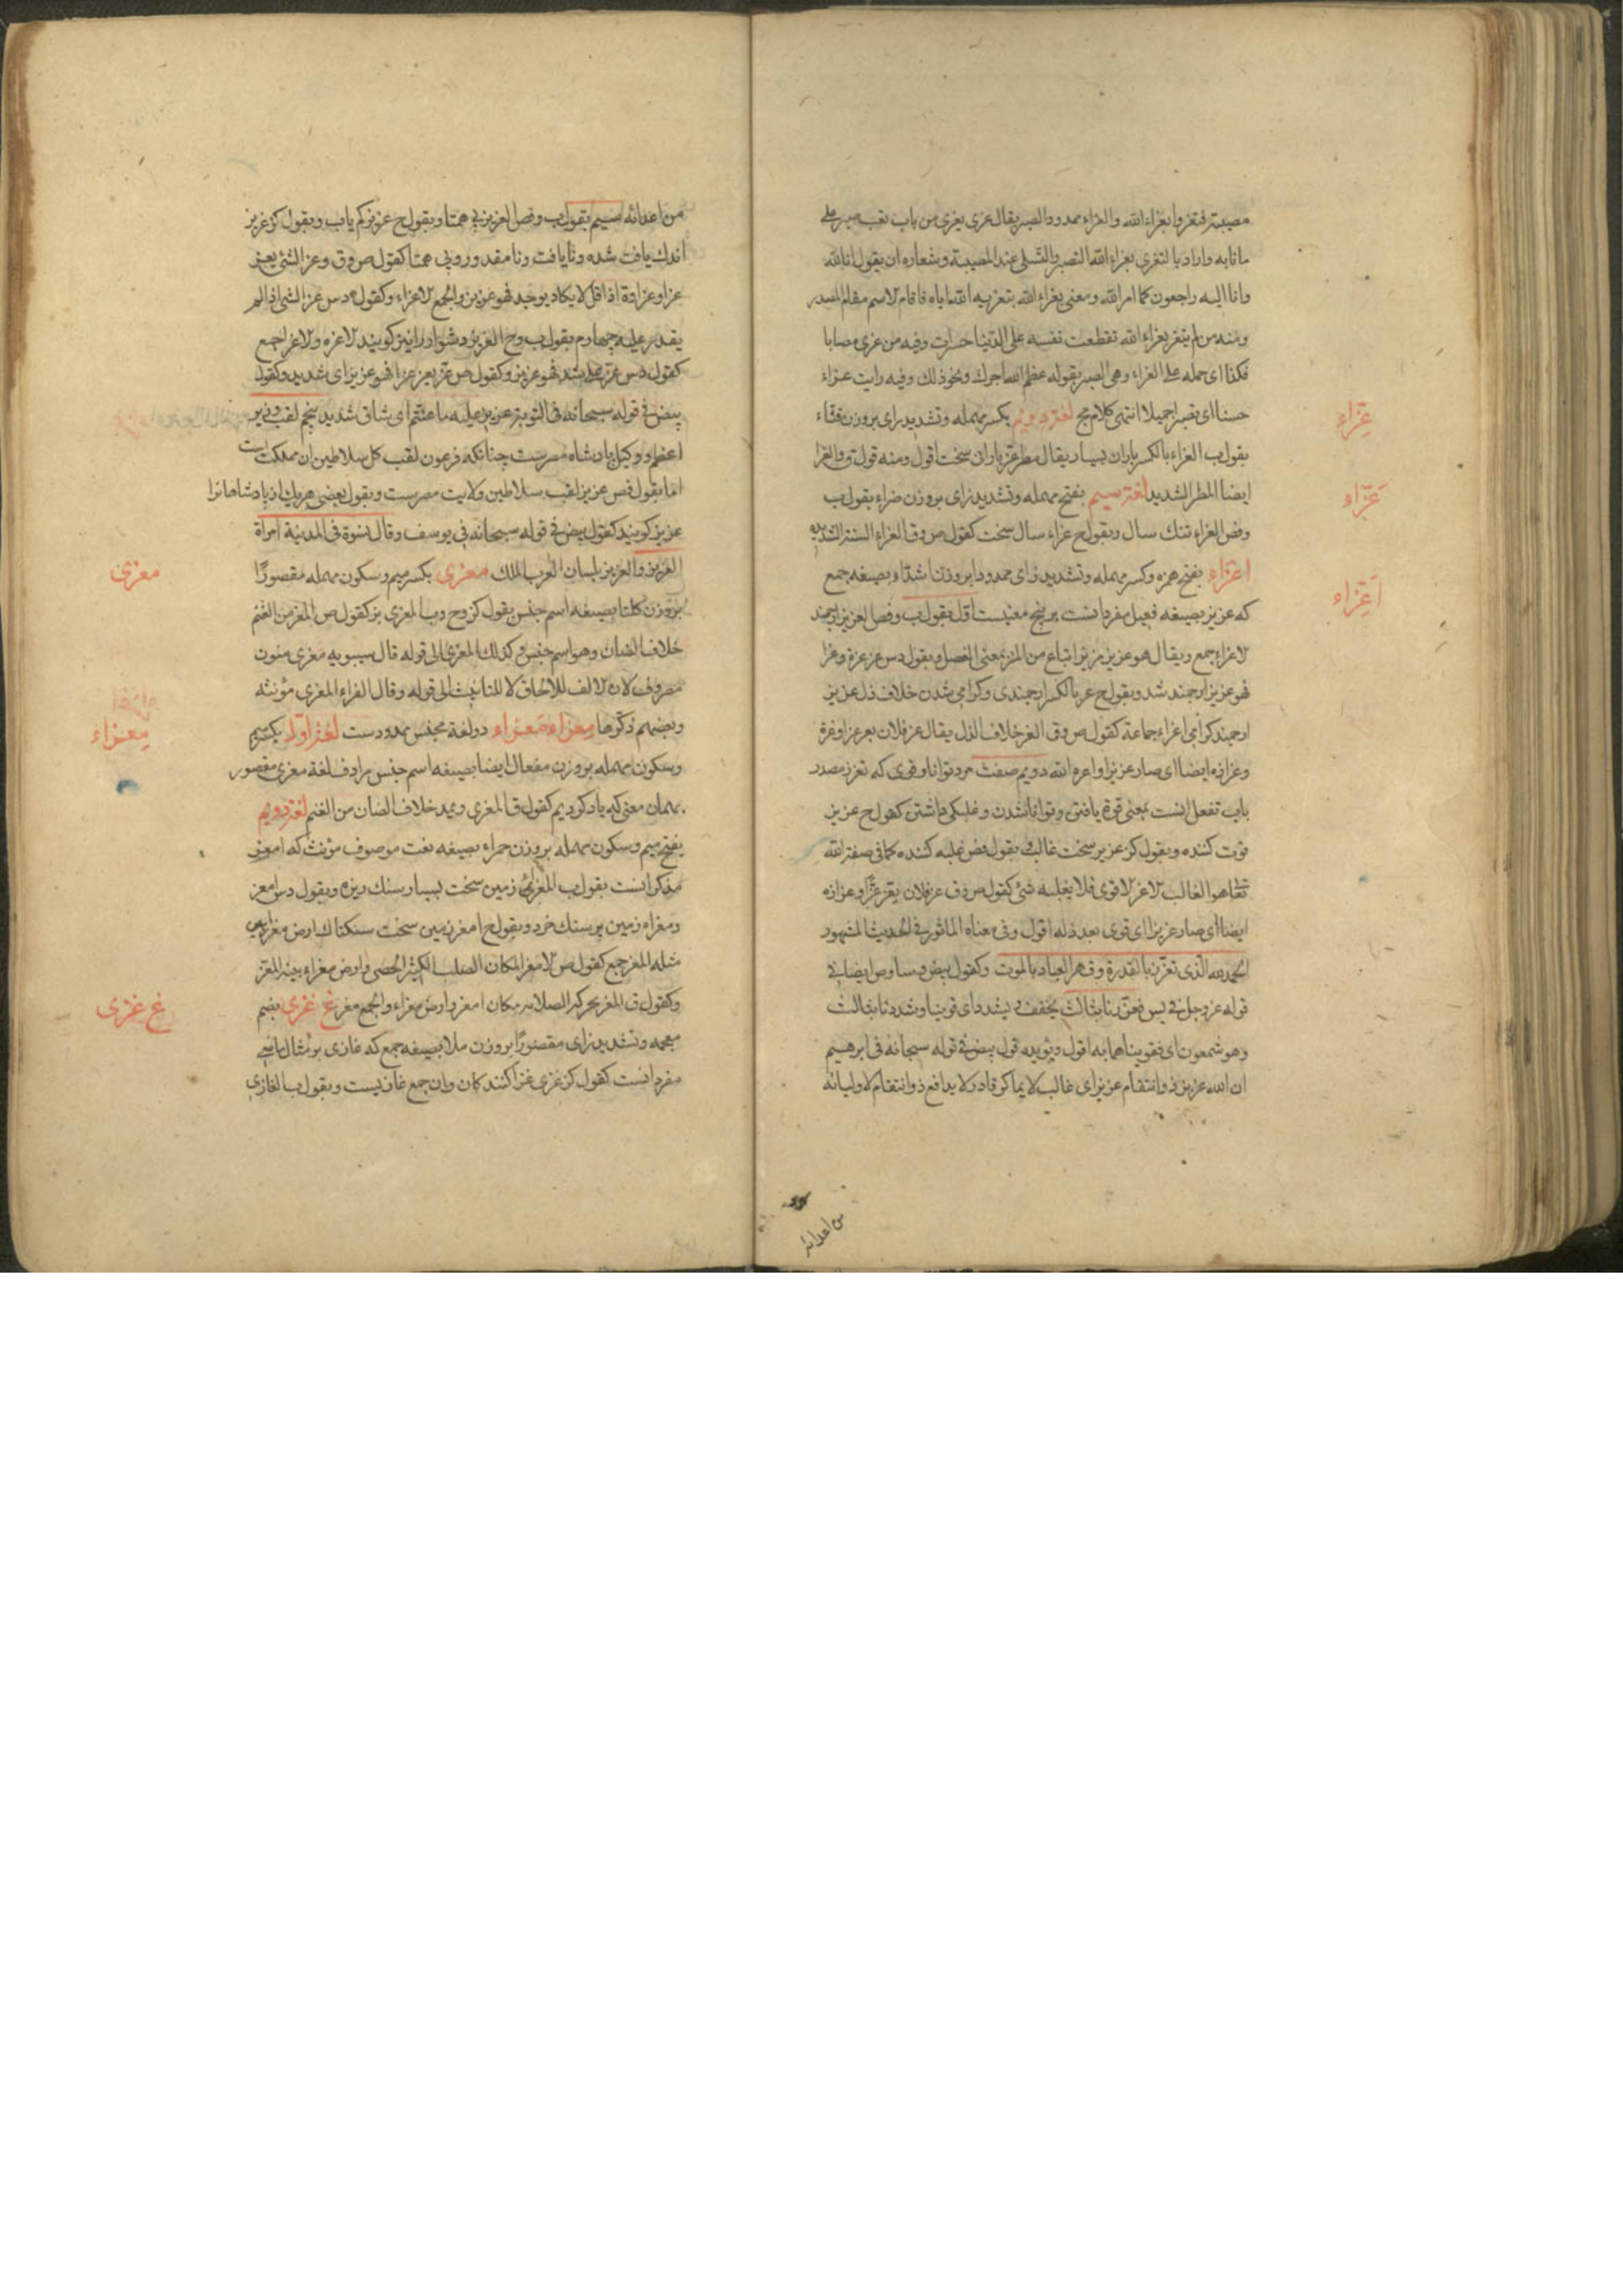 مصیبتہ فتعزوا بعزاء الله والعزاء ممدودا لصبر یقال عزی یعزی من باب تعب صبر علی
مانابه واراد بالتعزی بعزاء الله التصبر والتسلی عند المصیبة وشعاره ان یقول انا لله
وانا الیه راجعون کما امر الله ومعنی بعزاء الله بتعزیه الله ایاه فاقام الاسم مقام المصدر
ومنه من لم یتعز بعزاء الله تقطعت نفسه علی الدنیا حسرات وفیه من عزی مصابا
فکذا ای حمله علی العزاء وهی الصبر بقوله عظم الله اجرک ونحو ذلک وفیه رایت عزاء
حسنا ای تصبرا جمیلا انتهی کلام مج لغة دویم بکسر مهمله وتشدید زای بروزن قثاء
بقول ب العزاء بالکسر باران بسیار یقال مطر عز باران سخت اقول ومنه قول ق والعزا
ایضا المطر الشدید لغة سیم بفتح مهمله وتشدید زای بروزن ضراء بقول ب
وفض العزاء تنک سال وبقول ح عزاء سال سخت کقول ص وق العزاء السنة الشدیده
اعزاء بفتح همزه وکسر مهمله وتشدید زای ممدودا بروزن اشداء بصیغه جمع
که عزیز بصیغه فعیل مفرد انست بر پنج معنیست اول بقول ب وفص العزیز ارجمند
الاعزاء جمع ویقال هو عزیز مزیز اتباع من المز بمعنی الفضل وبقول دس عز عزة وعزا
فهو عزیز ارجمند شد وبقول ح عز بالکسر ارجمندی وکرامی شدن خلاف ذل عزیز
ارجمند کرامی اعزاء جماعة کقول ص وق العز خلاف الذل یقال عز فلان یعز عزا وعزة
وعزازه ایضا ای صار عزیزا واعزه الله دویم صفت مرد توانا وقوی که تعزز مصدر
باب تفعل انست بمعنی قوة یافتن وتوانا شدن وغلبکی داشتن کقول ح عزیز
قوت کننده وبقول کز عزیز سخت غالب وبقول فض غلبه کننده کما فی صفة الله
تعا هو الغالب الاعز الاقوی فلا یغلبه شئ کقول ص وق عز فلان یعز عزا وعزازه
ایضا ای صار عزیزا ای قوی بعد ذله اقول وفی معناه الماثور فی الحدیث المشهور
الحمد لله الذی تعزز بالقدرة وقهر العباد بالموت وکقول بیض وسا وص ایضا فی
قوله عز وجل فی یس فعززنا بثالث یخفف ویشدد ای قوینا وشددنا بثالث
وهو شمعون ای فقویناهما به اقول ویؤیده قول بیض فی قوله سبحانه فی ابرهیم
ان الله عزیز ذو انتقام عزیز ای غالب لا یماکر قادر لا یدافع ذو انتقام لاولیائه
من اعدائه
عزاء
عزاء
اعزاء
من اعدائه سیم بقول ب وفص العزیز بی همتا وبقول ح عزیز کم یاب وبقول کز عزیز
اندک یافت شده ونایافت ونامقدور وبی همتا کقول ص وق وعز الشئ یعز
عزا وعزازة اذا قل لا یکاد یوجد فهو عزیز والجمع الاعزاء وکقول دس عز الشئ اذا لم
یقدر علیه چهارم بقول ب وح العزیز دشوار را نیز کویند الاعزه والاعزا جمع
کقول دس عز علیه شد فهو عزیز وکقول ص عز یعز عزا فهو عزیز ای شدید وکقول
بیض فی قوله سبحانه فی التوبة عزیز علیه ما عنتم ای شاق شدید پنجم لقب وزیر
اعظم ووکیل پادشاه مصرست چنانکه فرعون لقب کل سلاطین ان مملکت است
اما بقول فص عزیز لقب سلاطین ولایت مصرست وبقول بعضی هریک از پادشاهانرا
عزیز کویند کقول بیض فی قوله سبحانه فی یوسف وقال نسوة فی المدینة امراة
العزیز والعزیز بلسان العرب الملک معزی بکسر میم وسکون مهمله مقصورا
بروزن کلتا بصیغه اسم جنس بقول کز وح وب المعزی بز کقول ص المعز من الغنم
خلاف الضان وهو اسم جنس وکذلک المعزی الی قوله قال سیبویه معزی منون
مصروف لان الالف للالحاق لا للتانیث الی قوله وقال الفراء المعزی مؤنثه
وبعضهم ذکرها معزاء معزاء دو لغة مجنس ممدودست لغة اول بکسر میم
وسکون مهمله بروزن مفعال ایضا بصیغه اسم جنس مرادف لغة معزی مقصور
بهمان معنی که یاد کردیم کقول ق المعزی ویمد خلاف الضان من الغنم لغة دویم
بفتح میم وسکون مهمله بروزن حمراء بصیغه نعت موصوف مؤنث که امعز
مذکر انست بقول ب المعزاء زمین سخت بسیار سنک ریزه وبقول دس امعز
ومعزاء زمین پر سنک خرد وبقول ح امعز زمین سخت سنکناک ارض معزاء
مثله المعز جمع کقول ص الامعز المکان الصلب الکثیر الحصی وارض معزاء بینة المعز
وکقول ق المعز بحرکه الصلابه مکان امعز وارض معزاء والجمع معز غ غزی بضم
معجمه وتشدید زای مقصورا بروزن ملا بصیغه جمع که غازی بر مثال ماشی
مفرد انست کقول کز غزی غزا کنندکان وان جمع غازیست وبقول ب الغازی
معزی
معزاء
غ غزی